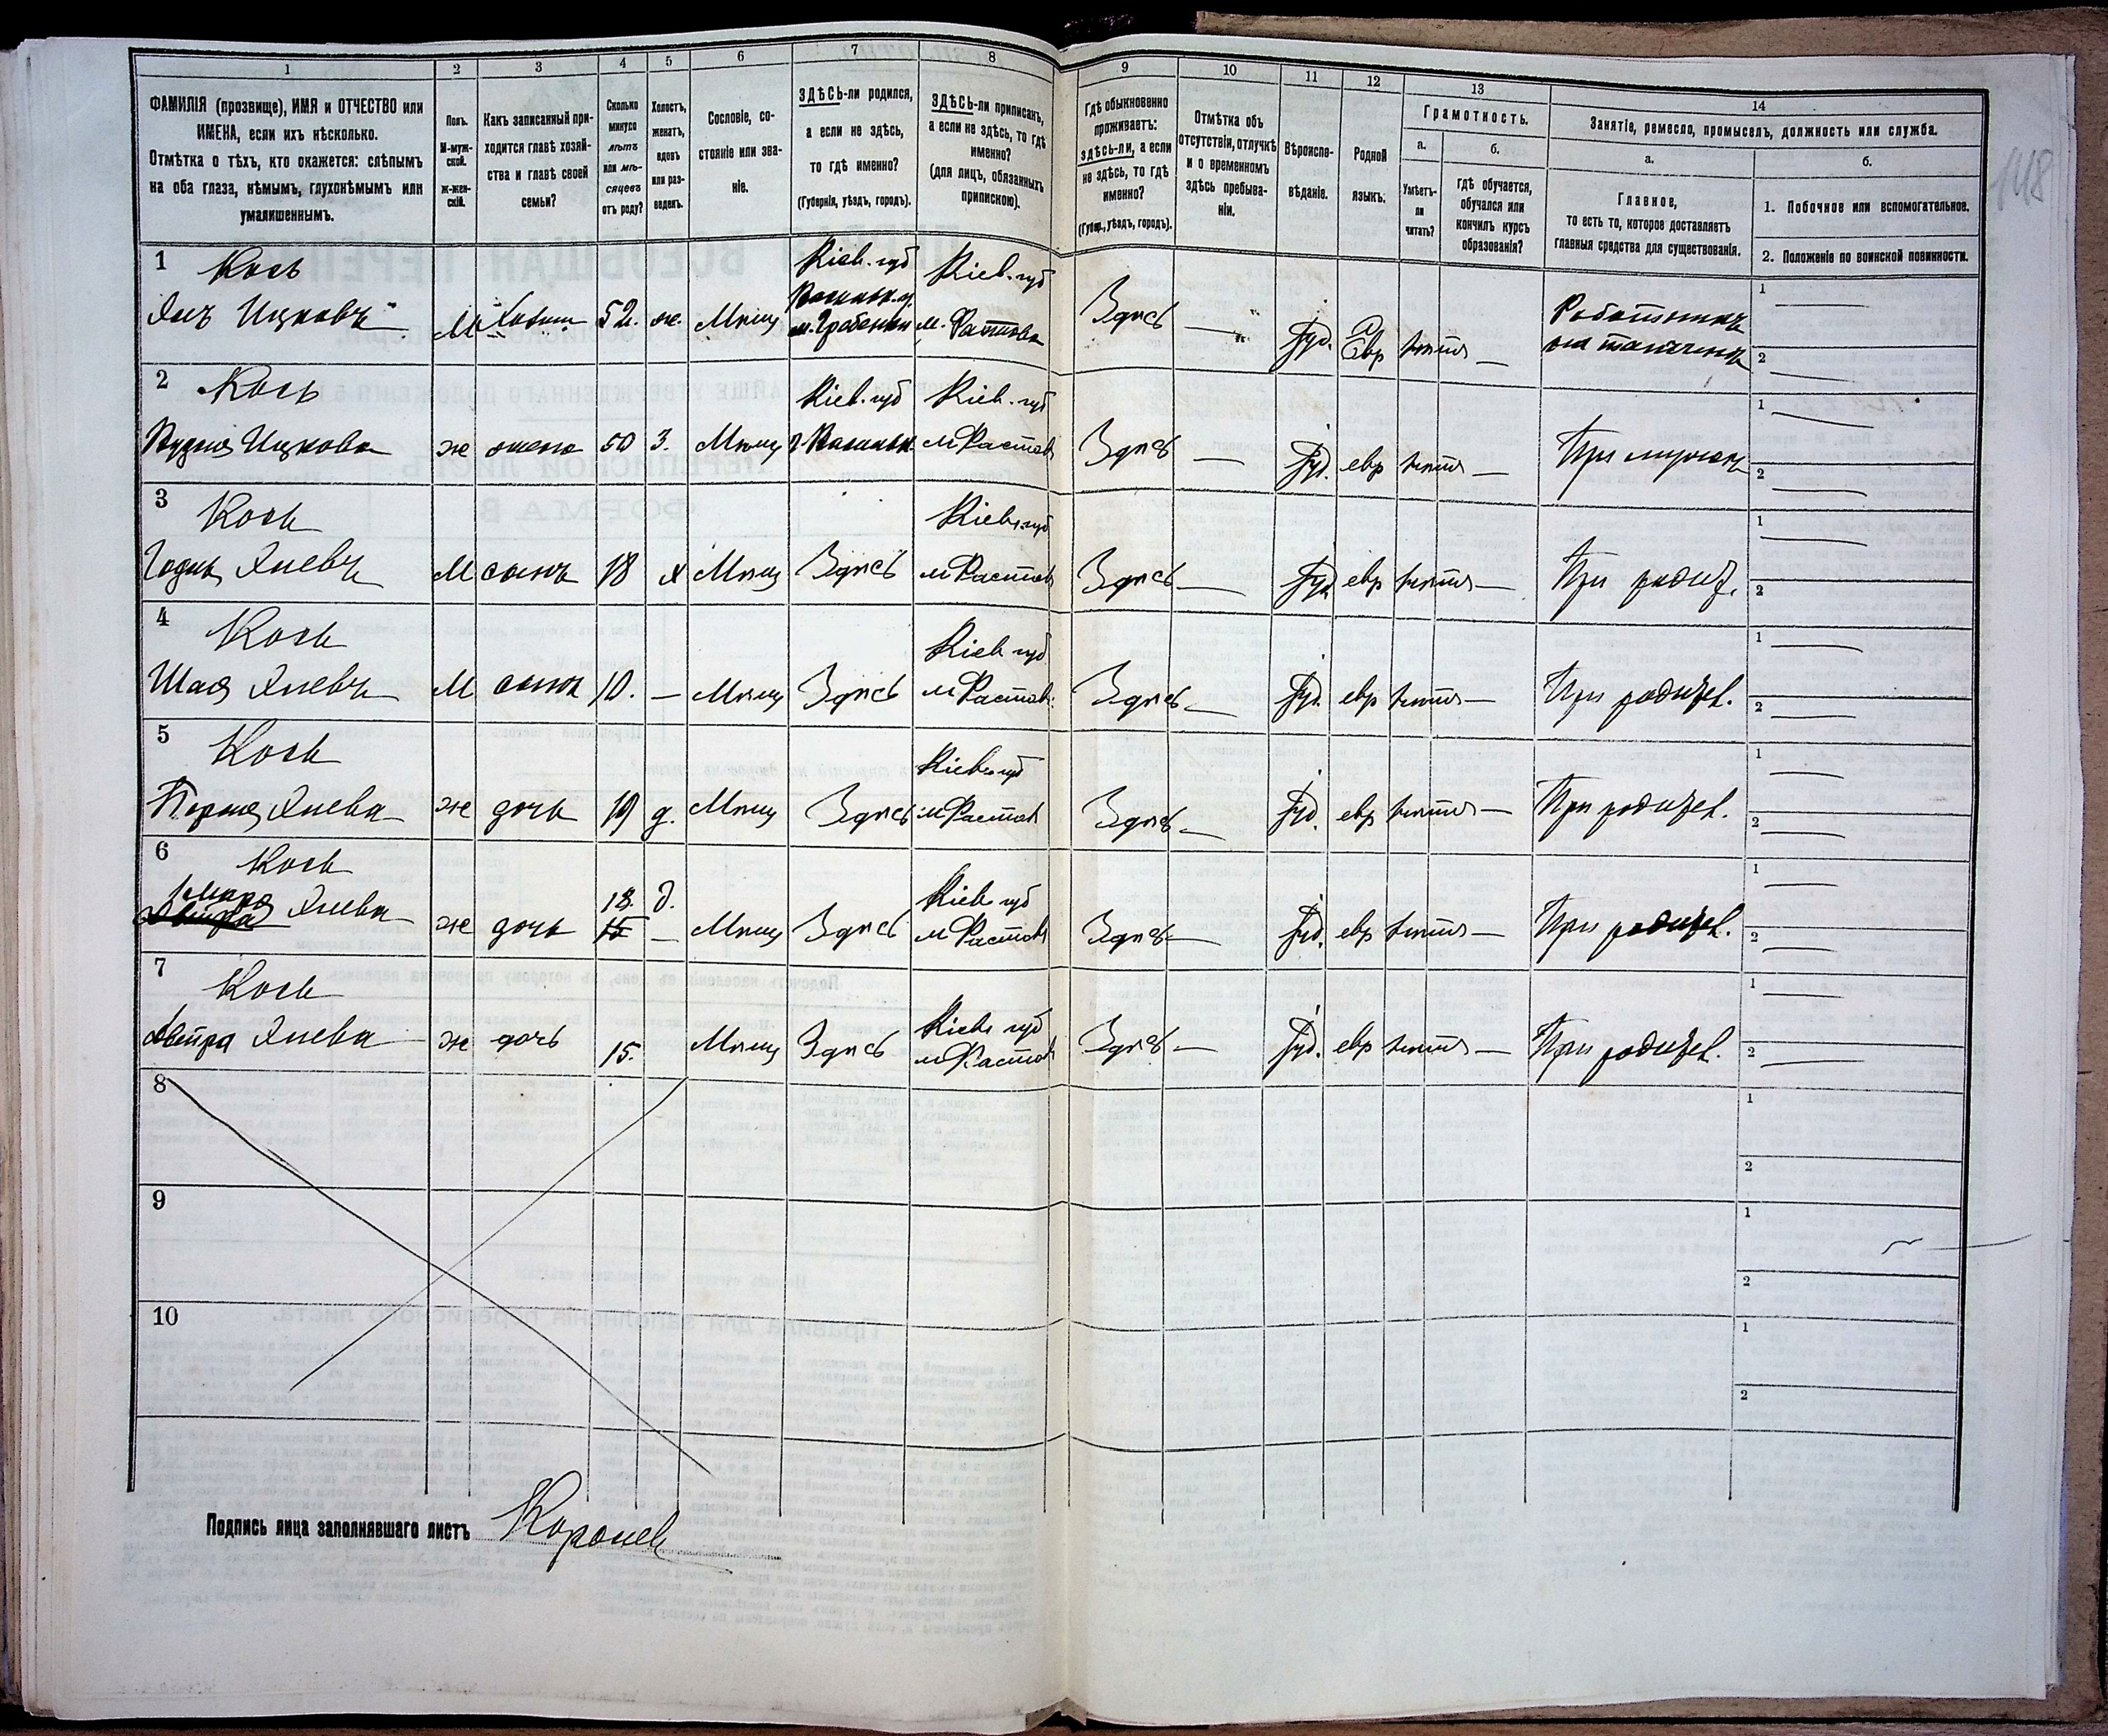 118
1 2 3 4 5 6 7 8 9 10 11 12 13 14
ФАМИЛІЯ (прозвище), ИМЯ и ОТЧЕСТВО или
ИМЕНА, если ихъ нѣсколько.
Отмѣтка о тѣхъ, кто окажется: слѣпымъ
на оба глаза, нѣмымъ, глухонѣмымъ или
умалишеннымъ.
Полъ.
М-муж-
ской.
ж-жен-
скій.
Какъ записанный при-
ходится главѣ хозяй-
ства и главѣ своей
семьи?
Сколько
минуло
лѣтъ
или мѣ-
сяцевъ
отъ роду?
Холостъ,
женатъ,
вдовъ
или раз-
веденъ.
Сословіе, со-
стояніе или зва-
ніе.
ЗДѢСЬ-ли родился,
а если не здѣсь,
то гдѣ именно?
(Губернія, уѣздъ, городъ).
ЗДѢСЬ-ли приписанъ,
а если не здѣсь, то гдѣ
именно?
(для лицъ, обязанныхъ
припискою).
Гдѣ обыкновенно
проживаетъ:
здѣсь-ли, а если
не здѣсь, то гдѣ
именно?
(Губер., уѣздъ, городъ).
Отмѣтка объ
отсутствіи, отлучкѣ
и о временномъ
здѣсь пребыва-
ніи.
Вѣроиспо-
вѣданіе.
Родной
языкъ.
Грамотность.
а.
Умѣетъ-
ли
читать?
б.
Гдѣ обучается,
обучался или
кончилъ курсъ
образованія?
Занятіе, ремесло, промыселъ, должность или служба.
а.
Главное,
то есть то, которое доставляетъ
главныя средства для существованія.
б.
1. Побочное или вспомогательное.
2. Положеніе по воинской повинности.
1 Кось Кіев. губ Кіев. губ 1
Ицковъ М 52. ж. Мѣщ м. Гребенки м. Фастова Здѣсь — Іуд. Евр — Работникъ 2
2 Кось Кіев. губ Кіев. губ 1
Ицкова ж жена 50 З. Мѣщ м Фастов Здѣсь — Іуд. евр — При мужѣ 2
3 Кось Кіев. губ 1
М сынъ 18 х Мѣщ Здѣсь м Фастов Здѣсь — Іуд евр — При родит. 2
4 Кось Кіев губ 1
Шая М сынъ 10. — Мѣщ Здѣсь м Фастов. Здѣсь — Іуд. евр — При родител. 2
5 Кось Кіев. губ 1
ж дочь 19 д. Мѣщ Здѣсь м Фастов Здѣсь — Іуд. евр — При родител. 2
6 Кось 18. д. Кіев губ 1
ж дочь 15 — Мѣщ Здѣсь м Фастов Здѣсь — Іуд. евр — При родител. 2
7 Кось Кіев губ 1
ж дочь 15. Мѣщ Здѣсь м Фастов Здѣсь — Іуд. евр — При родител. 2
8 1
2
9 1
2
10 1
2
Подпись лица заполнявшаго листъ